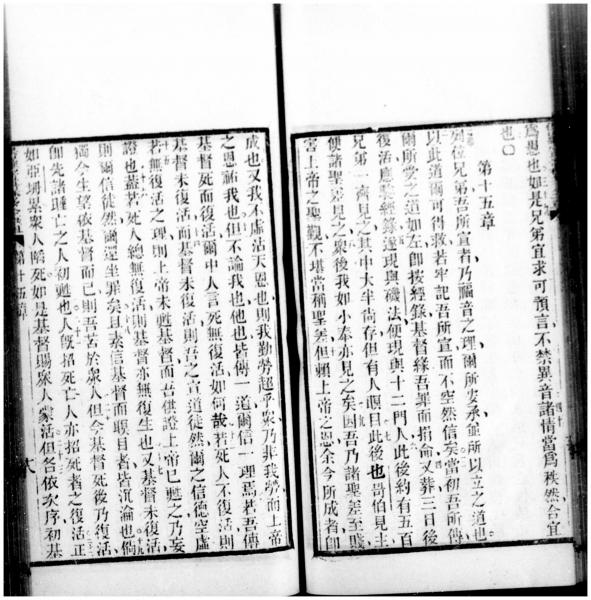 為毘也如是兄弟宜求可預言不禁異音諸情當為秩然合宜
也
第十五章
列位兄弟吾所宣者乃福音之理爾所妥承並所以立之道也
以此道爾可得救若牢記吾所宣而不空然信矣當初吾所傳
爾所受之道如左即按經錄基督緣吾罪而捐命又葬三日後
復活應驗經錄遂現與磯法便現與十二門人此後約有五百
兄弟一齊見之其中大半尚存但有人瞑目此後也哥伯見主
便諸聖差見之眾後我如小奉亦見之矣因吾乃諸聖差至賤
害上帝之聖觀不堪當稱聖差但賴上帝之恩余今所成者即
成也又我不虛沾天恩也則我勤勞超乎眾乃非我勞而上帝
之恩祐我也但不論我也他也皆傳一道爾信一理焉若吾傳
基督死而復活爾中人言死無復活如何哉若死人不復活則
基督未復活而基督未復活則吾之宣道徒然爾之信德空虛
若無復活之理則上帝未甦基督而吾供證上帝已甦之乃妄
證也蓋若死人總無復活則基督亦無復生也又基督未復活
則爾信徒然爾還坐罪矣且素信基督而瞑目者皆沉淪也倘
獨今生望依基督而已則吾苦於眾人但今基督死後乃復活
即先諸睡亡之人初甦也人既招死亡人亦招死者之復活正
如亞坍累眾人陷死如是基督賜眾人蒙活但各依次序初基
第十五章